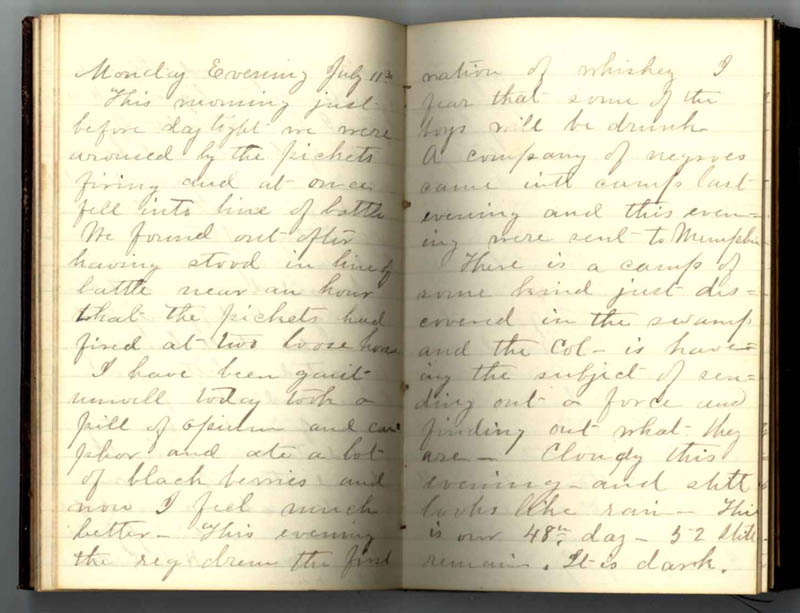 Monday Evening July 11th
This morning just
before day light we were
aroused by the pickets
firing and at once
fell into line of battle
We found out after
having stood in line of
battle near an hour
that the pickets had
fired at two loose horses
I have been quit
unwell today took a
pill of opium and cam
phor and ate a lot
of black berries and
now I feel much
better – This evening
the reg drew the first
nation of whiskey I
fear that some of the
boys will be drunk
A company of negroes
came into camp last
evening and this even-
ing were sent to Memphis
There is a camp of
some kind just dis=
covered in the swamp
and the Col – is have=
ing the subject of sen=
ding out a force and
finding out what they
are – Cloudy this
evening – and still
looks like rain – This
is our 48th day – 52 still
remain. It is dark.